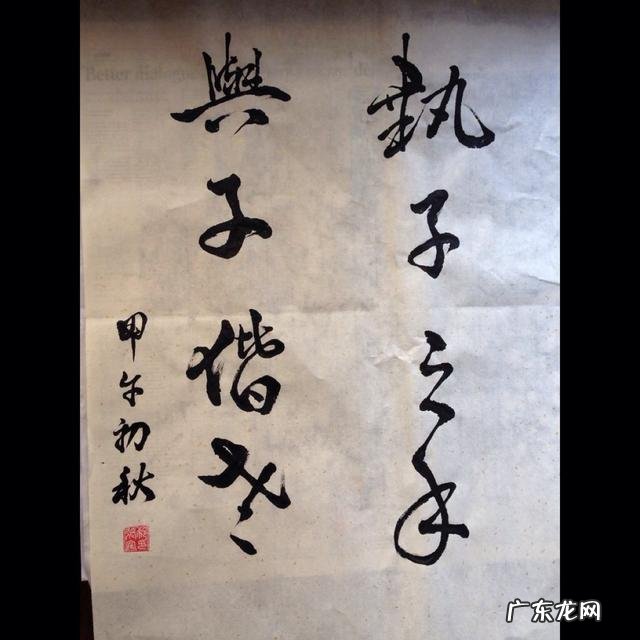 執子之手
與子偕老
甲午初秋
Better dialogue
广东龙网